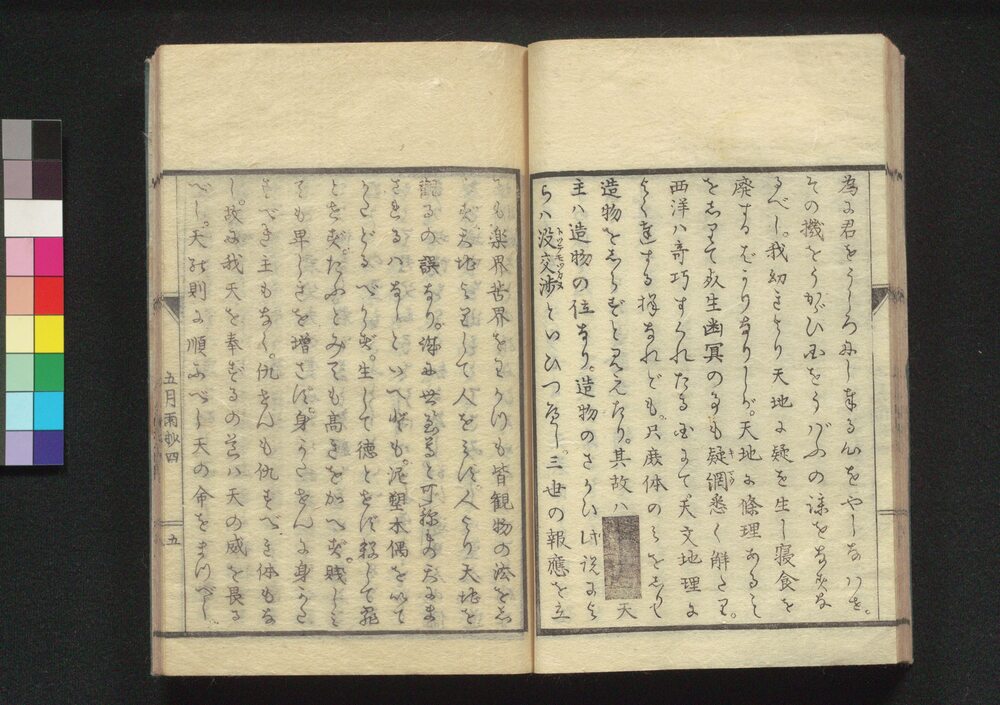 為に君をうしろにし奉る心をやしなハば。
その機をうかゞひ国をうばふの謀をなすな
るべし。我幼きより天地に疑を生し寝食を
廃するばかりなりしが。天地に條理あること
をしりて死生幽冥の事も疑網悉く解たり。
西洋ハ奇巧すぐれたる国にて天文地理に
よく達する様なれども。只麁体のミをしりて
造物をしらずと見えたり。其故ハ 天
主ハ造物の位なり。造物のさかひ此説によ
らハ没交渉といひつべし。三世の報應を立
るも楽界苦界を わけも皆観物の法をし
らず。天地よりして人をミず。人より天地を
觀るの誤なり。世尊と可称もの天にま
さまるハなしといへども。泥塑木偶を以て
かたどるべからず。生して徳とせず殺して罪
とせず。たふとみても高きをかへず賎しミ
ても卑しきを増さず。身かたせんに身かた
すべき主もなく。仇せんも仇すべき体もな
し。故に我天を奉ずるの道ハ天の威を畏る
べし。天の則に順ふべし天の命をまつべし。
五月雨抄四
五